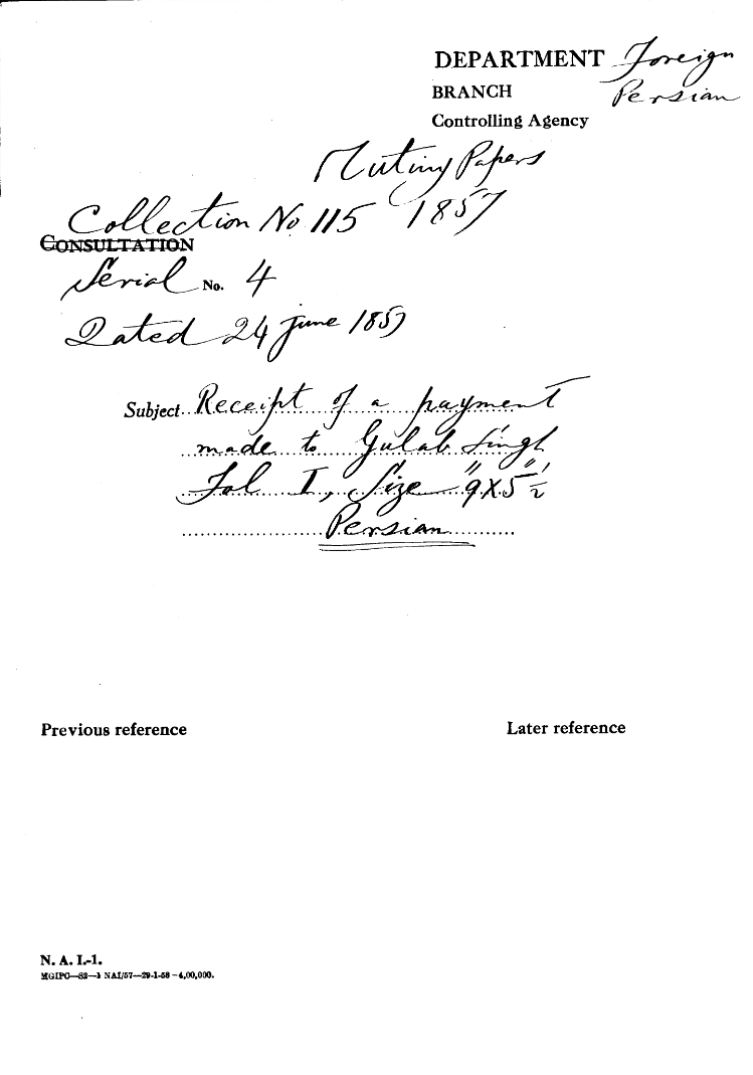 DEPARTMENT Foreign
BRANCH Persian
Controlling Agency
Mutiny Papers
Collection No 115 1857
CONSULTATION
Serial No. 4
Dated 24 June 1857
Subject Receipt of a payment
made to Gulab Singh
Fol I, Size 9" X 5" ½
Persian
Previous reference
Later reference
N. A. I.-1.
MGIPC—S2—1 NAI/57—29-1-58—4,00,000.